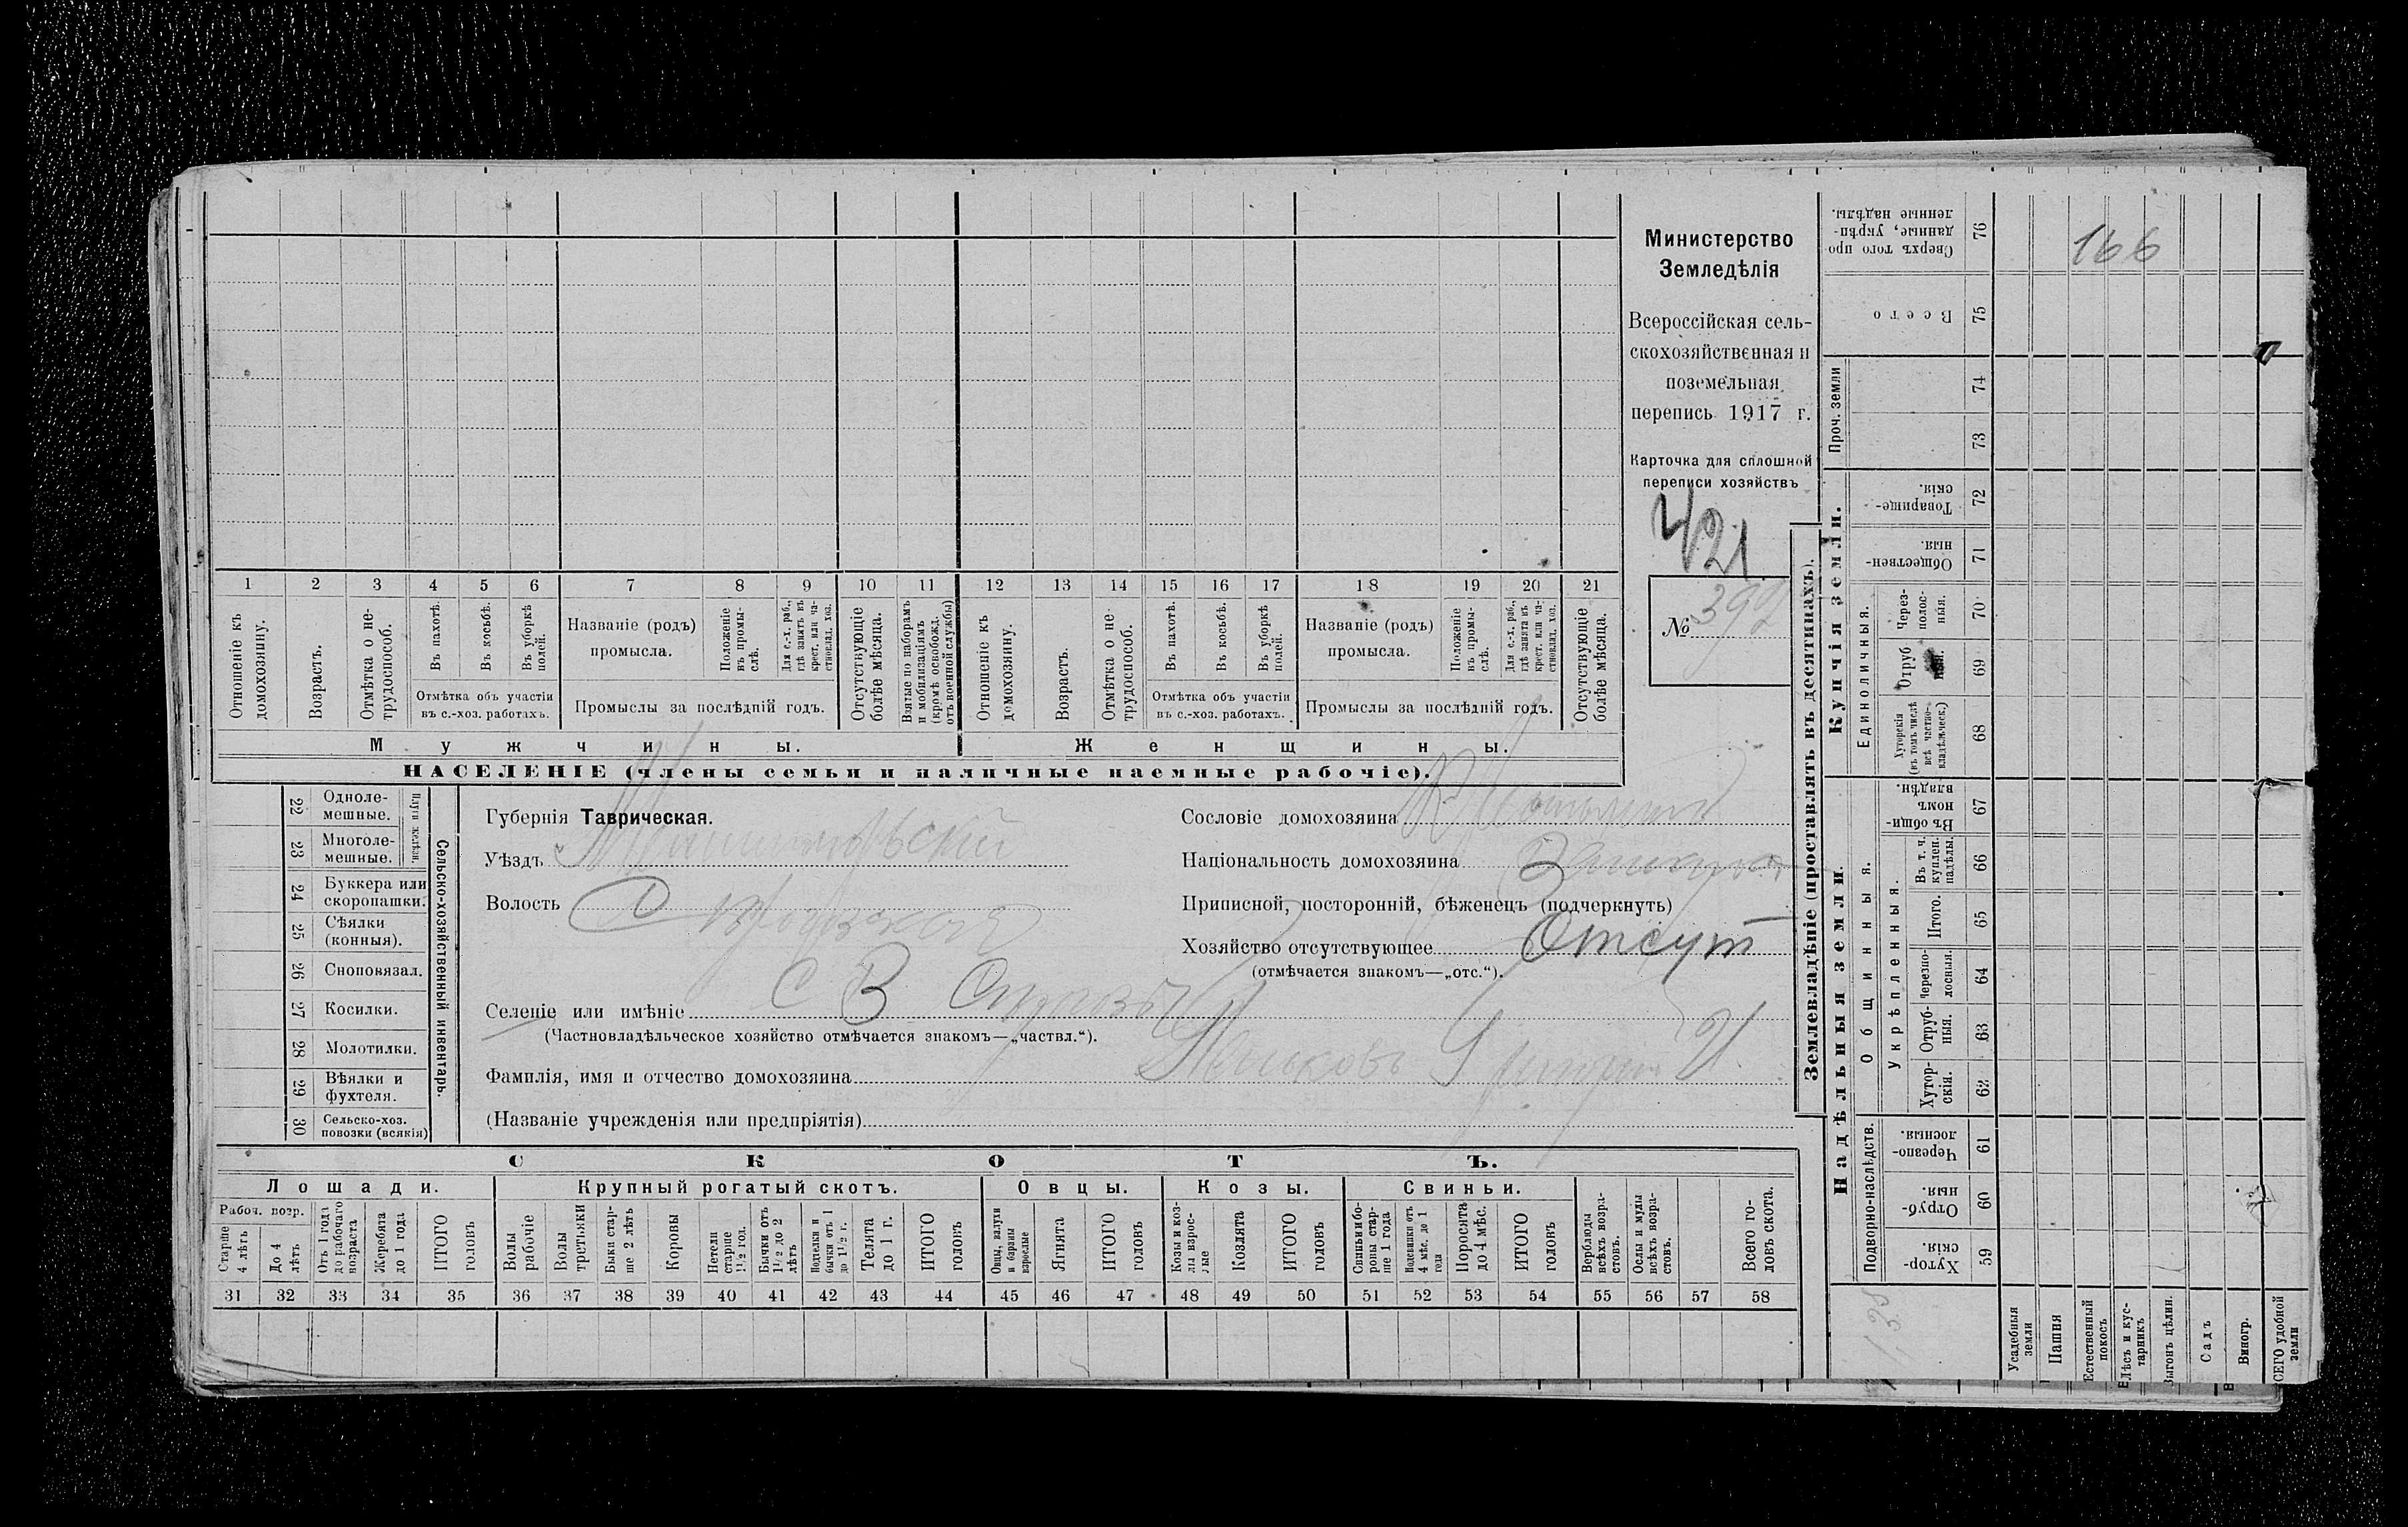 Министерство
Земледѣлія
Всероссійская сель-
скохозяйственная и
поземельная
перепись 1917 г.
Карточка для сплошной
переписи хозяйствъ
421
№ 392
1 2 3 4 5 6 7 8 9 10 11 12 13 14 15 16 17 18 19 20 21
Отношеніе къ домохозяину.
Возрастъ.
Отмѣтка о не-трудоспособ.
Въ пахотѣ.
Въ косьбѣ.
Въ уборкѣ полей.
Отмѣтка объ участіи
въ с.-хоз. работахъ.
Названіе (родъ)
промысла.
Положеніе въ промы-слѣ.
Для с.-х. раб., гдѣ занятъ въ крест. или ча-стновлад. хоз.
Промыслы за послѣдній годъ.
Отсутствующіе болѣе мѣсяца.
Взятые по наборамъ и мобилизаціямъ (кромѣ освобожд. отъ военной службы)
Отношеніе къ домохозяину.
Возрастъ.
Отмѣтка о не-трудоспособ.
Въ пахотѣ.
Въ косьбѣ.
Въ уборкѣ полей.
Отмѣтка объ участіи
въ с.-хоз. работахъ.
Названіе (родъ)
промысла.
Положеніе въ промы-слѣ.
Для с.-х. раб., гдѣ занята въ крест. или ча-стновлад. хоз.
Промыслы за послѣдній годъ.
Отсутствующіе болѣе мѣсяца.
Мужчины.
Женщины.
НАСЕЛЕНІЕ (члены семьи и наличные наемные рабочіе).
22 Одноле-мешные.
23 Многоле-мешные.
Плуги желѣзн.
24 Буккера или скоропашки.
25 Сѣялки (конныя).
26 Сноповязал.
27 Косилки.
28 Молотилки.
29 Вѣялки и фухтеля.
30 Сельско-хоз. повозки (всякія)
Сельско-хозяйственный инвентарь.
Губернія Таврическая.
Уѣздъ
Волость
Селеніе или имѣніе
(Частновладѣльческое хозяйство отмѣчается знакомъ—„частвл.“).
Фамилія, имя и отчество домохозяина
(Названіе учрежденія или предпріятія)
Сословіе домохозяина
Національность домохозяина
Приписной, посторонній, бѣженецъ (подчеркнуть)
Хозяйство отсутствующее Отсут
(отмѣчается знакомъ—„отс.“).
СКОТЪ.
Лошади.
Крупный рогатый скотъ.
Овцы.
Козы.
Свиньи.
Рабоч. возр.
Старше 4 лѣтъ
До 4 лѣтъ
Отъ 1 года до рабочаго возраста
Жеребята до 1 года
ИТОГО головъ
Волы рабочіе
Волы третьяки
Быки стар-ше 2 лѣтъ
Коровы
Нетели старше 1½ год.
Бычки отъ 1½ до 2 лѣтъ
Нетелки и бычки отъ 1 до 1½ г.
Телята до 1 г.
ИТОГО головъ
Овцы, валухи и бараны взрослые
Ягнята
ИТОГО головъ
Козы и коз-лы взрос-лые
Козлята
ИТОГО головъ
Свиньи и бо-ровы стар-ше 1 года
Подсвинки отъ 4 мѣс. до 1 года
Поросята до 4 мѣс.
ИТОГО головъ
Верблюды всѣхъ возра-стовъ.
Ослы и мулы всѣхъ возра-стовъ.
Всего го-ловъ скота.
31 32 33 34 35 36 37 38 39 40 41 42 43 44 45 46 47 48 49 50 51 52 53 54 55 56 57 58
Землевладѣніе (проставлять въ десятинахъ).
Купчія земли.
Надѣльныя земли.
76 Сверхъ того про-данные, укрѣп-ленные надѣлы.
166
75 Всего
Проч. земли
74
73
72 Товарище-скія.
71 Обществен-ныя.
Единоличныя.
70 Через-полос-ныя.
69 Отруб
68 Хуторскія (въ томъ числѣ всѣ частно-владѣльческ.)
67 Въ общи-номъ владѣн.
66 Въ т. ч. куплен. надѣлы
65 Итого.
Общинныя.
Укрѣпленныя.
64 Черезпо-лосныя.
63 Отруб-ныя.
62 Хутор-скія.
Подворно-наслѣдств.
61 Черезпо-лосныя
60 Отруб-ныя.
59 Хутор-скія.
Усадебныя земли
Пашня
Естественный покосъ
Лѣсъ и кус-тарникъ
Выгонъ цѣлин.
Садъ
Виногр.
ВСЕГО удобной земли